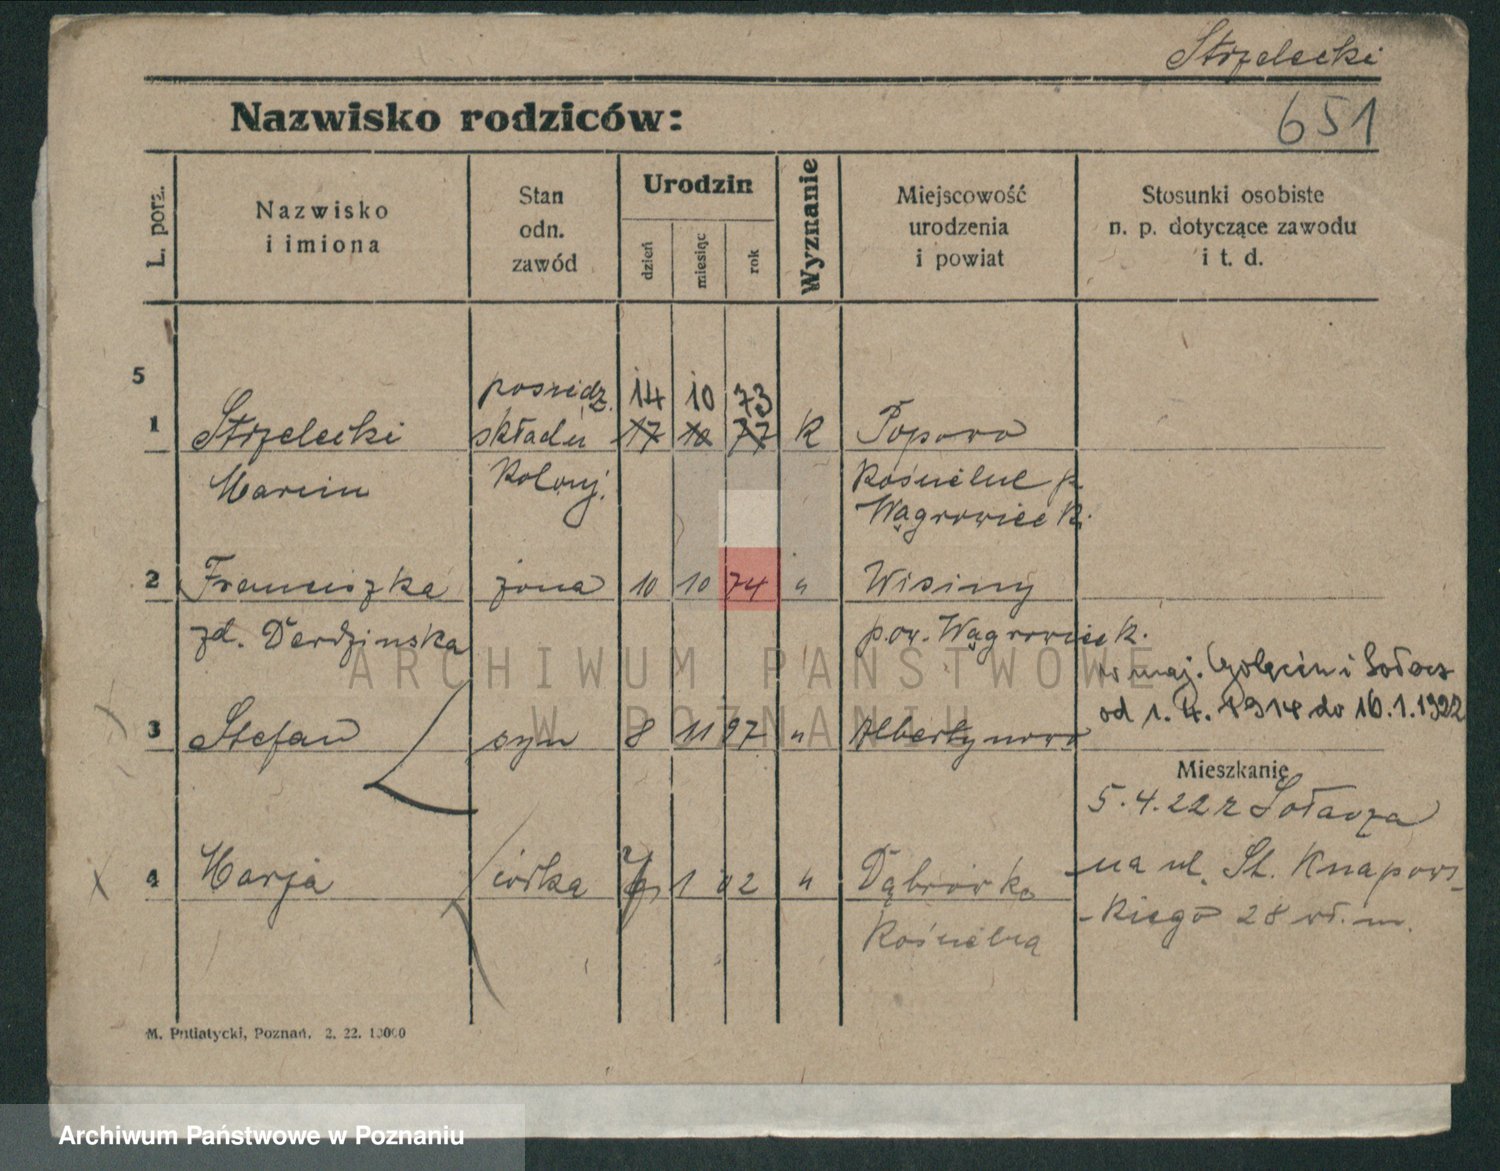 Strzelecki
651
Nazwisko rodziców:
L. porz.
Nazwisko
i imiona
Stan
odn.
zawód
Urodzin
dzień
miesiąc
rok
Wyznanie
Miejscowość
urodzenia
i powiat
Stosunki osobiste
n. p. dotyczące zawodu
i t. d.
5
posiedz. 14 10 73
1 Strzelecki składu 17 10 77 K Popowo
Marcin Kolonj. Kościelne p.
Wągrowieck.
2 Franciszka żona 10 10 74 " Wisiny
zd. Derdzinska pow. Wągrowieck.
w maj. Golęcin i Sołacz
od 1. 4. 1914 do 16.1.1922
3 Stefan syn 8 11 97 " Albertynowo
Mieszkanie
5.4.22 z Sołacza
4 Marja córka 1 02 " Dąbrówka
na ul. St. Knapows-
Kościelna
-kiego 28 wł. m.
M. Putiatycki, Poznań. 2. 22. 10000
ARCHIWUM PAŃSTWOWE
W POZNANIU
Archiwum Państwowe w Poznaniu